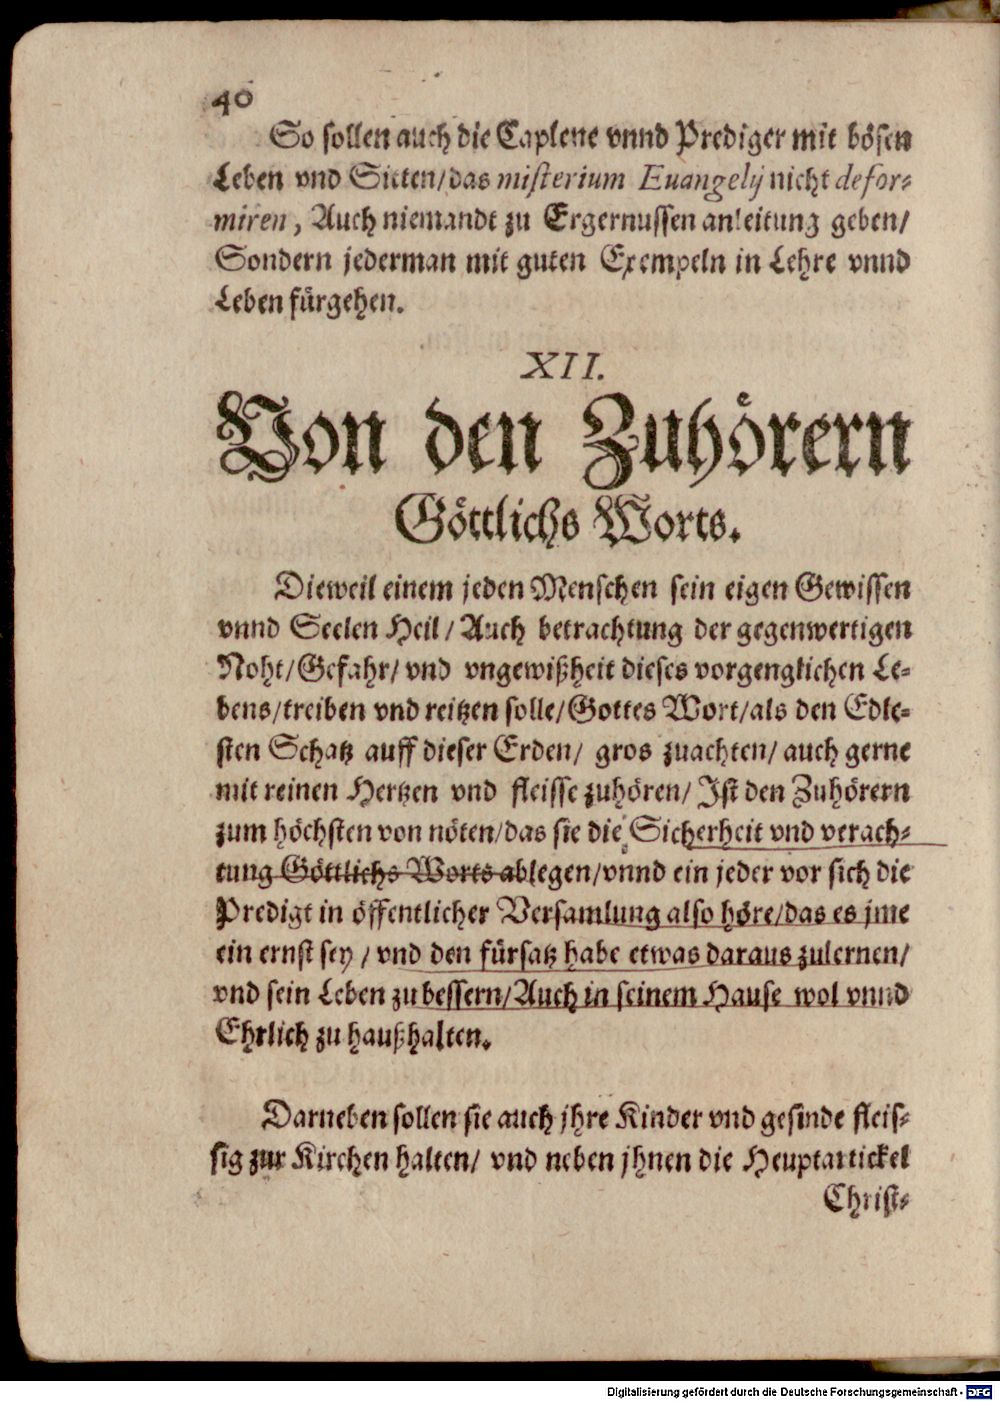 40
So sollen auch die Caplene vnnd Prediger mit bösen
Leben vnd Sitten/das misterium Euangelij nicht defor-
miren, Auch niemandt zu Ergernussen anleitung geben/
Sondern jederman mit guten Exempeln in Lehre vnnd
Leben fürgehen.
XII.
Von den Zuhörern
Göttlichs Worts.
Dieweil einem jeden Menschen sein eigen Gewissen
vnnd Seelen Heil/Auch betrachtung der gegenwertigen
Noht/Gefahr/vnd vngewißheit dieses vorgenglichen Le-
bens/treiben vnd reitzen solle/Gottes Wort/als den Edle-
sten Schatz auff dieser Erden/ gros zuachten/auch gerne
mit reinen Hertzen vnd fleisse zuhören/Ist den Zuhörern
zum höchsten von nöten/das sie die Sicherheit vnd verach-
tung Göttlichs Worts ablegen/vnnd ein jeder vor sich die
Predigt in öffentlicher Versamlung also höre/das es jme
ein ernst sey/vnd den fürsatz habe etwas daraus zulernen/
vnd sein Leben zu bessern/Auch in seinem Hause wol vnnd
Ehrlich zu haußhalten.
Darneben sollen sie auch jhre Kinder vnd gesinde fleis-
sig zur Kirchen halten/ vnd neben jhnen die Heuptartickel
Christ-
Digitalisierung gefördert durch die Deutsche Forschungsgemeinschaft - DFG